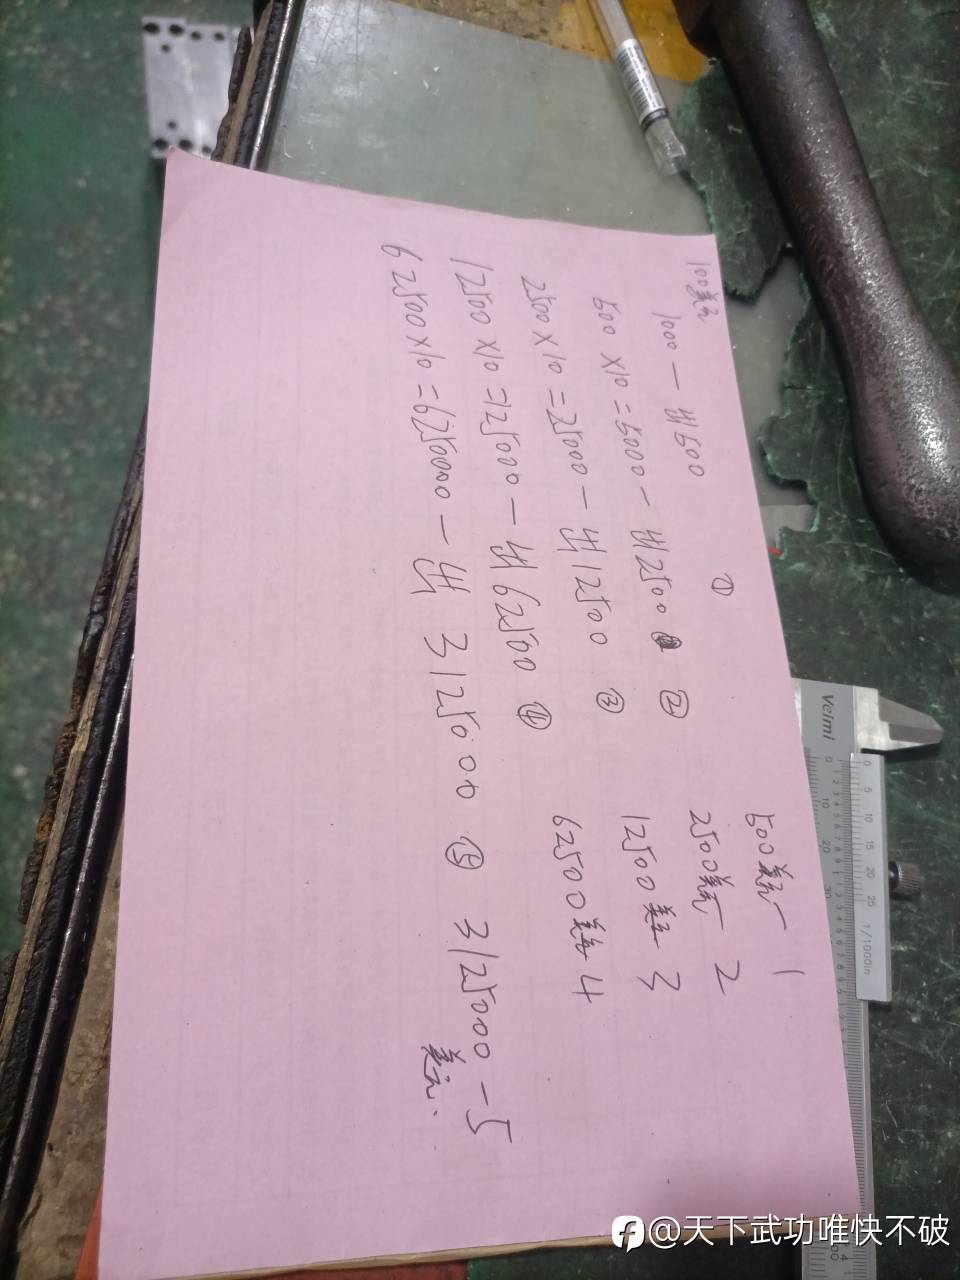 100美元
1000 — 出500 ①
500×10=5000 — 出2500 ②
2500×10=25000 — 出12500 ③
12500×10=125000 — 出62500 ④
62500×10=625000 — 出 312500 ⑤
500美元 — 1
2500美元 2
12500美元 3
62500美元 4
312500 — 5
美元.
Veimi
0 5 10 15 20 25 1/1000in
@天下武功唯快不破